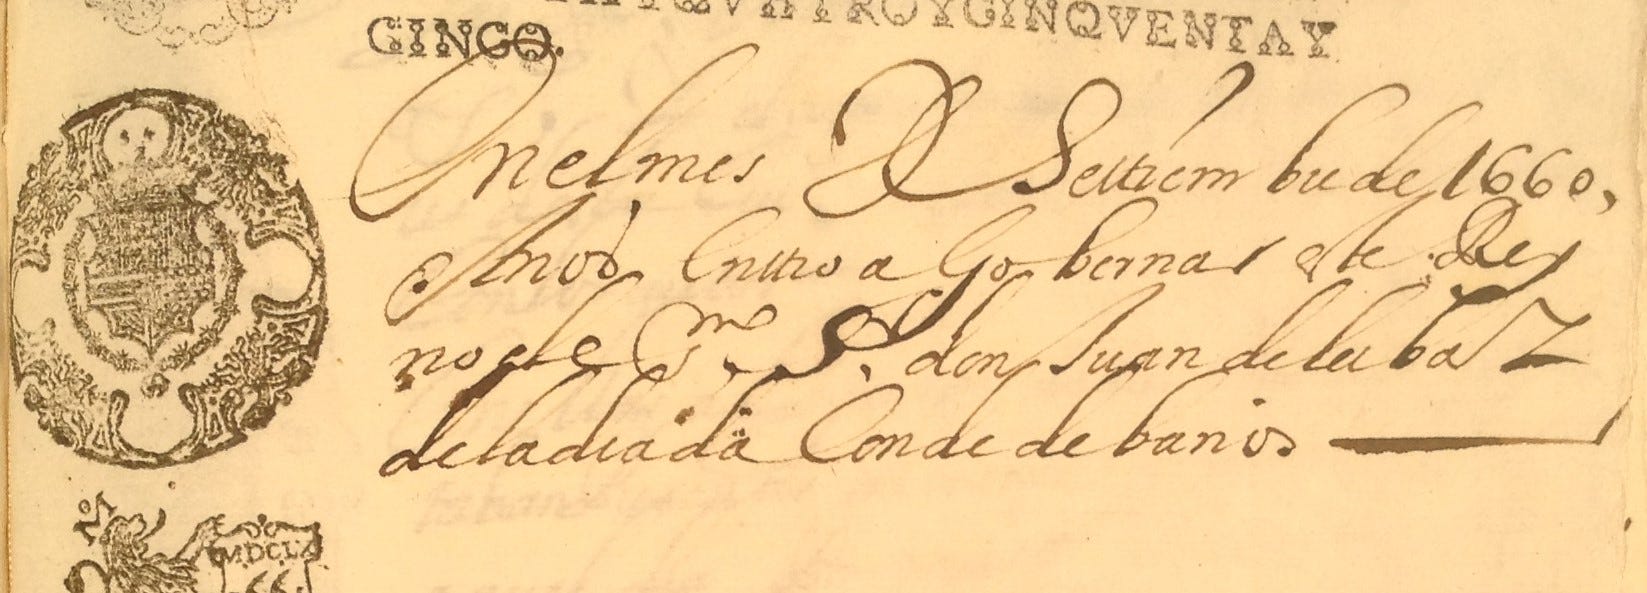 QVATROYCINQVENTAY
CINCO.
En el mes De Settiembre de 1660,
Años Entro a Gobernar este Rey
no el Ex.mo S.r don Juan de leiba Z
de la Zerda Conde de baños
MDCLX